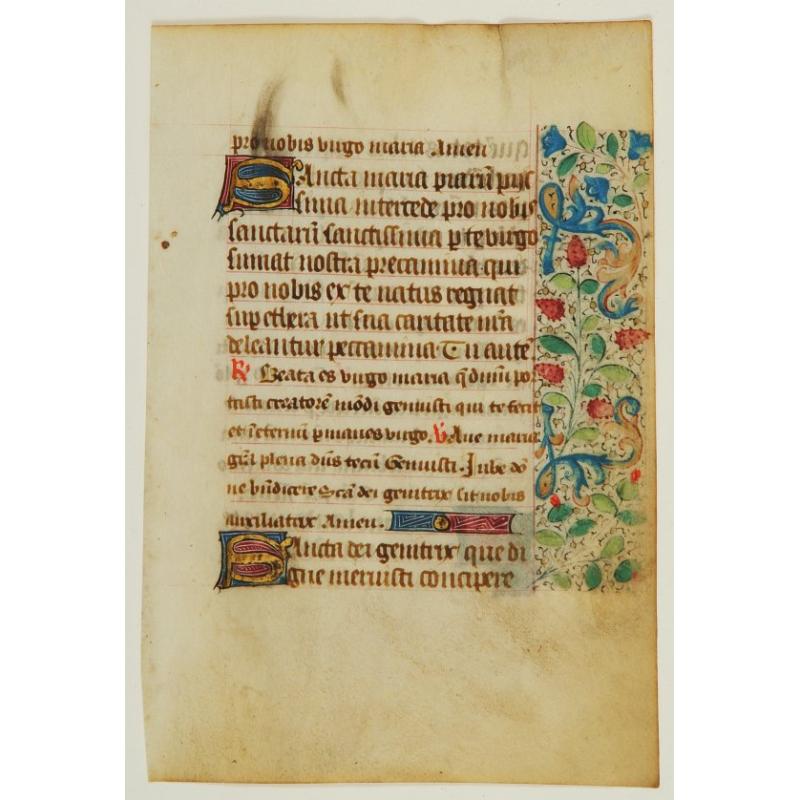 pro nobis virgo maria Amen
Sancta maria piarū pijs
sima intercede pro nobis
sanctarū sanctissima p te virgo
sumat nostra precamina qui
pro nobis ex te natus regnat
sup ethera ut sua caritate nr̄a
deleantur peccamina Tu autē
R Beata es virgo maria q̄ dnūm por
tasti creatorē mōdi genuisti qui te fecit
et ī eternū p manes virgo. V Aue maria
gr̄a plena dn̄s tecū Genuisti. Iube dō
ne bn̄dicere Scā dei genitrix sit nobis
auxiliatrix Amen.
Sancta dei genitrix que di
gne meruisti concipere